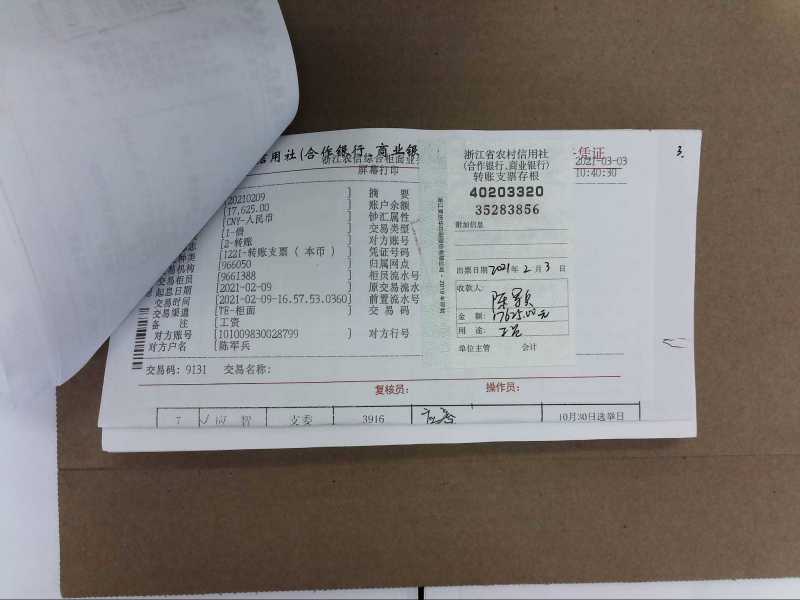 信用社(合作银行、商业银
浙江农信综合柜面业
屏幕打印
凭证
2021-03-03
10:40:30
3.
[20210209 ] 摘 要
[17,625.00 ] 账户余额
[CNY-人民币 ] 钞汇属性
[1-借 ] 交易类型
[2-转账 ] 对方账号
种类 [1221-转账支票(本币) ] 凭证号码
交易机构 [966050 ] 归属网点
交易柜员 [9661388 ] 柜员流水号
起息日期 [2021-02-09 ] 原交易流水
交易时间 [2021-02-09-16.57.53.0360] 前置流水号
交易渠道 [TE-柜面 ] 交易码
备 注 [工资
对方账号 [101009830028799 ] 对方行号
对方户名 [陈军兵
交易码: 9131 交易名称:
复核员: 操作员:
浙江省农村信用社
(合作银行、商业银行)
转账支票存根
40203320
35283856
附加信息
出票日期2021年2月3日
收款人:
金 额: 17625.00元
用 途: 工资
单位主管 会计
7 智 支委 3916 10月30日选举日